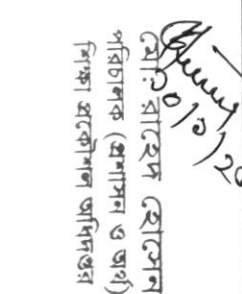 ২০/১/২০
মো: রাহেদ হোসেন
পরিচালক (প্রশাসন ও অর্থ)
শিক্ষা প্রকৌশল অধিদপ্তর